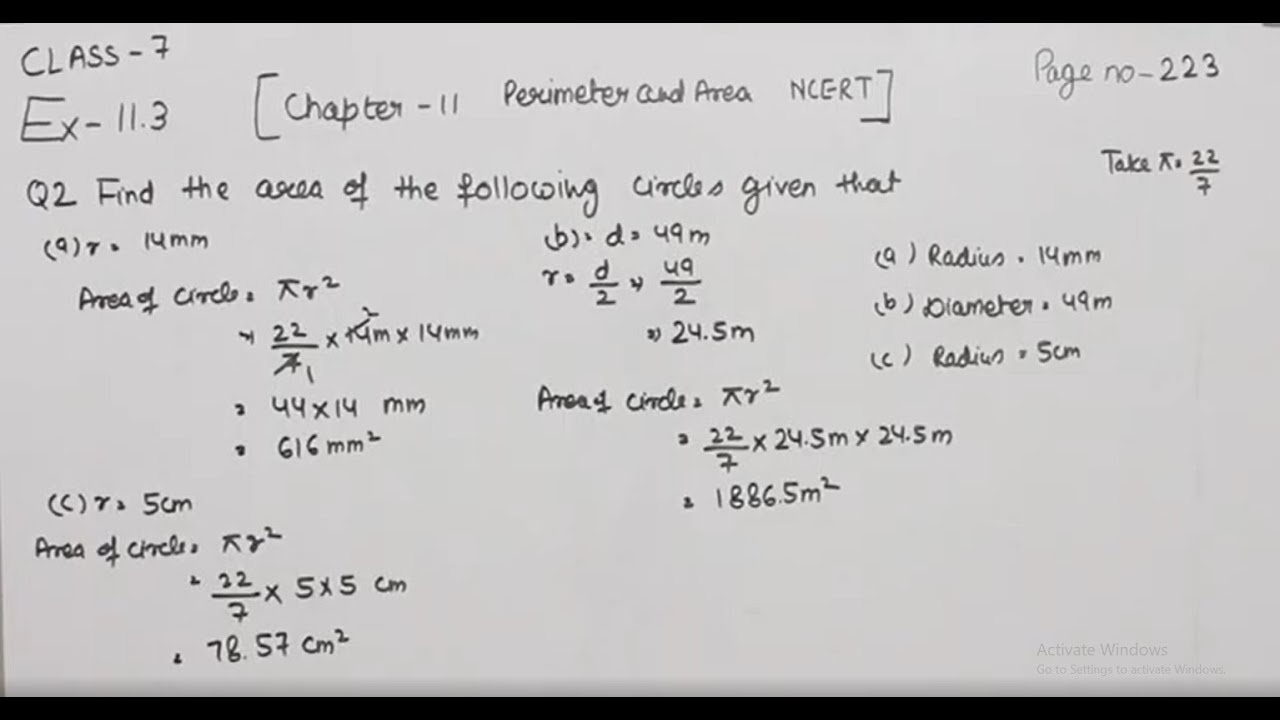 CLASS-7
Page no-223
Ex-11.3 [Chapter-11 Perimeter and Area NCERT]
Take π = 22/7
Q2 Find the area of the following circles given that
(a) Radius = 14mm
(b) Diameter = 49m
(c) Radius = 5cm
(a) r = 14mm
Area of circle = πr²
= 22/7 × 14m × 14mm
2
1
= 44×14 mm
= 616 mm²
(b) = d = 49m
r = d/2 = 49/2
= 24.5m
Area of circle = πr²
= 22/7 × 24.5m × 24.5m
= 1886.5m²
(c) r = 5cm
Area of circle = πr²
= 22/7 × 5×5 cm
= 78.57 cm²
Activate Windows
Go to Settings to activate Windows.